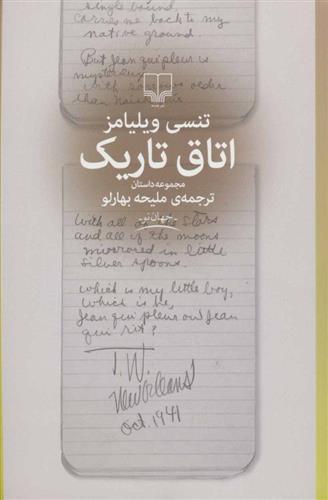 single bound,
carries me back to my
native ground.
But Jean qui pleur is
mysterious
with
older
than
تنسی ویلیامز
اتاق تاریک
مجموعه داستان
ترجمه‌ی ملیحه بهارلو
-جهان‌نو-
With all of the stars
and all of the moons
mirrored in little
Silver spoons.
Which is my little boy,
which is he,
Jean qui pleur ou Jean
qui rit?
T. W.
New Orleans
Oct. 1941